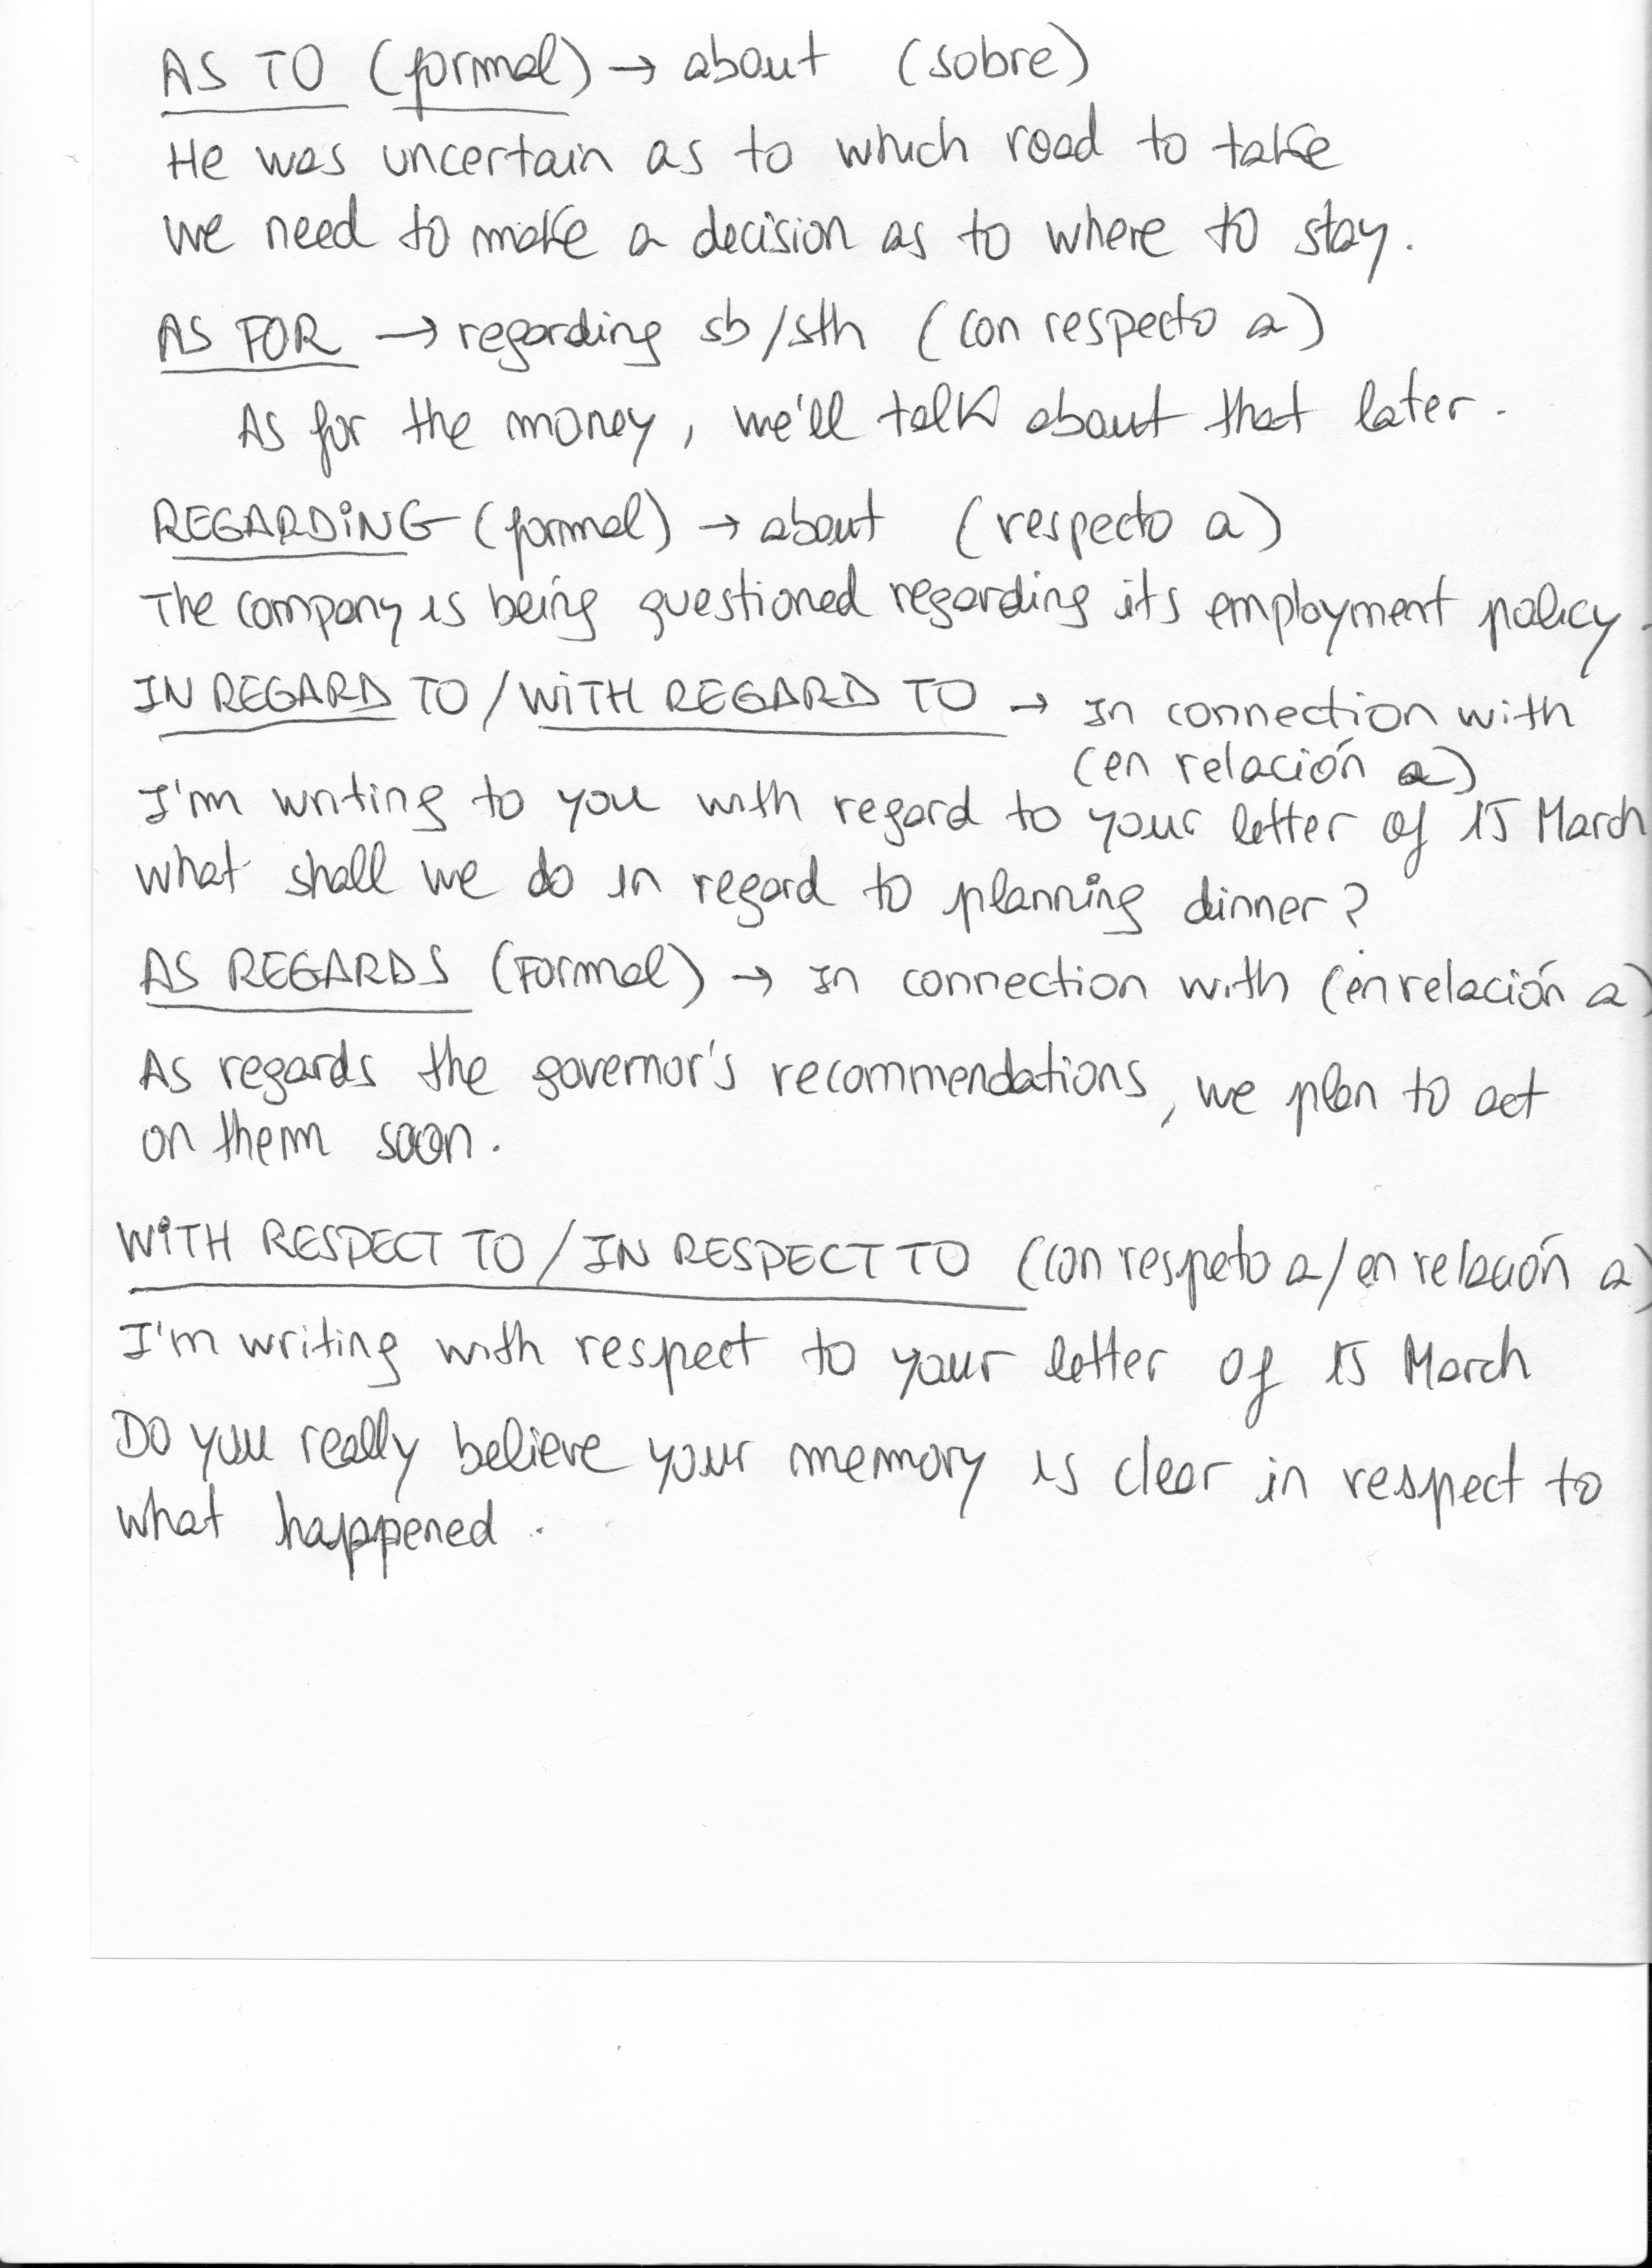 AS TO (formal) → about (sobre)
He was uncertain as to which road to take
We need to make a decision as to where to stay.
AS FOR → regarding sb/sth (con respecto a)
As for the money, we'll talk about that later.
REGARDING (formal) → about (respecto a)
The company is being questioned regarding its employment policy.
IN REGARD TO / WITH REGARD TO → In connection with
(en relación a)
I'm writing to you with regard to your letter of 15 March
What shall we do in regard to planning dinner?
AS REGARDS (Formal) → In connection with (en relación a)
As regards the governor's recommendations, we plan to act
on them soon.
WITH RESPECT TO / IN RESPECT TO (con respeto a / en relación a)
I'm writing with respect to your letter of 15 March
Do you really believe your memory is clear in respect to
what happened.